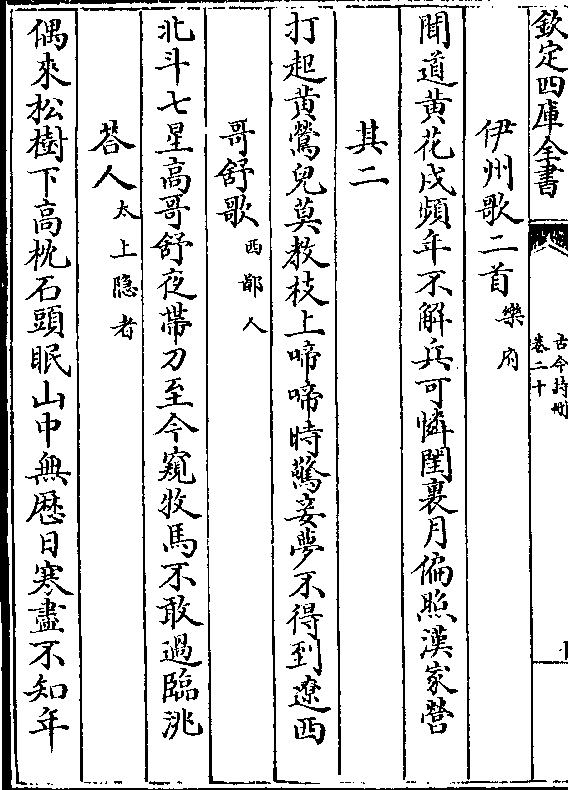 欽定四庫全書
古今詩刪
卷二十
伊州歌二首樂府
聞道黄花戍頻年不解兵可憐閨裏月偏照漢家營
其二
打起黄鶯兒莫教枝上啼啼時驚妾夢不得到遼西
哥舒歌西鄙人
北斗七星高哥舒夜帶刀至今窺牧馬不敢過臨洮
荅人太上隐者
偶來松樹下高枕石頭眠山中無厯日寒盡不知年